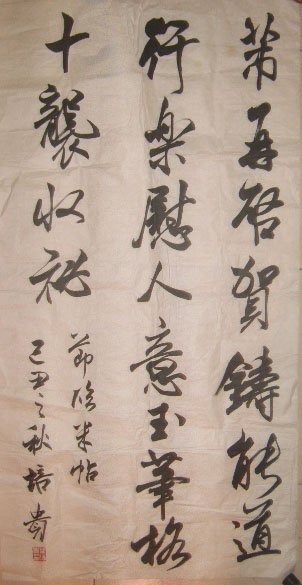 芾再启贺铸能道
衍乐慰人意玉笔格
十袭收秘
节临米帖
己丑之秋培贵